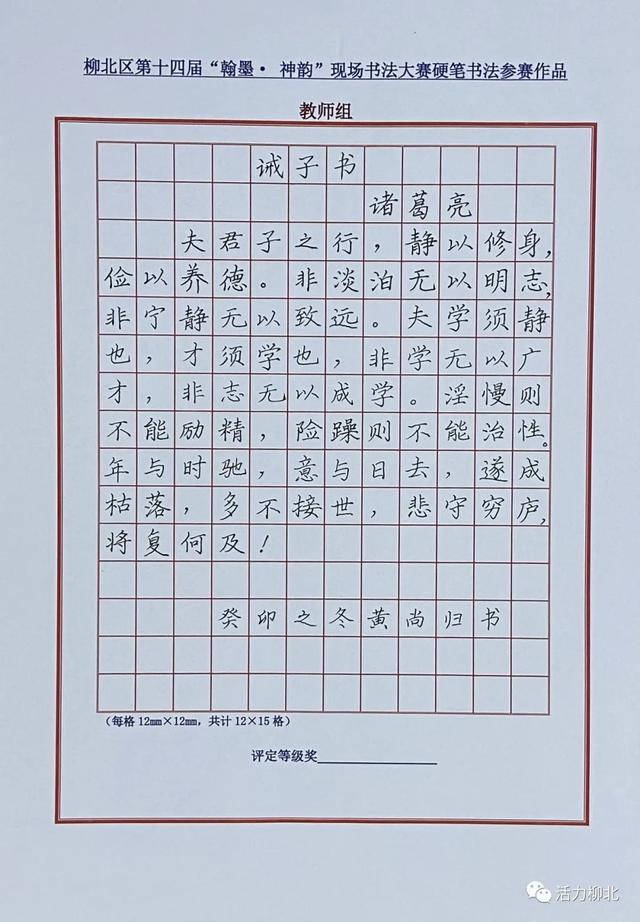 柳北区第十四届“翰墨· 神韵”现场书法大赛硬笔书法参赛作品
教师组
诫子书
诸葛亮
夫君子之行，静以修身，
俭以养德。非淡泊无以明志，
非宁静无以致远。夫学须静
也，才须学也，非学无以广
才，非志无以成学。淫慢则
不能励精，险躁则不能治性。
年与时驰，意与日去，遂成
枯落，多不接世，悲守穷庐，
将复何及！
癸卯之冬黄尚归书
（每格12mm×12mm，共计12×15格）
评定等级奖
活力柳北